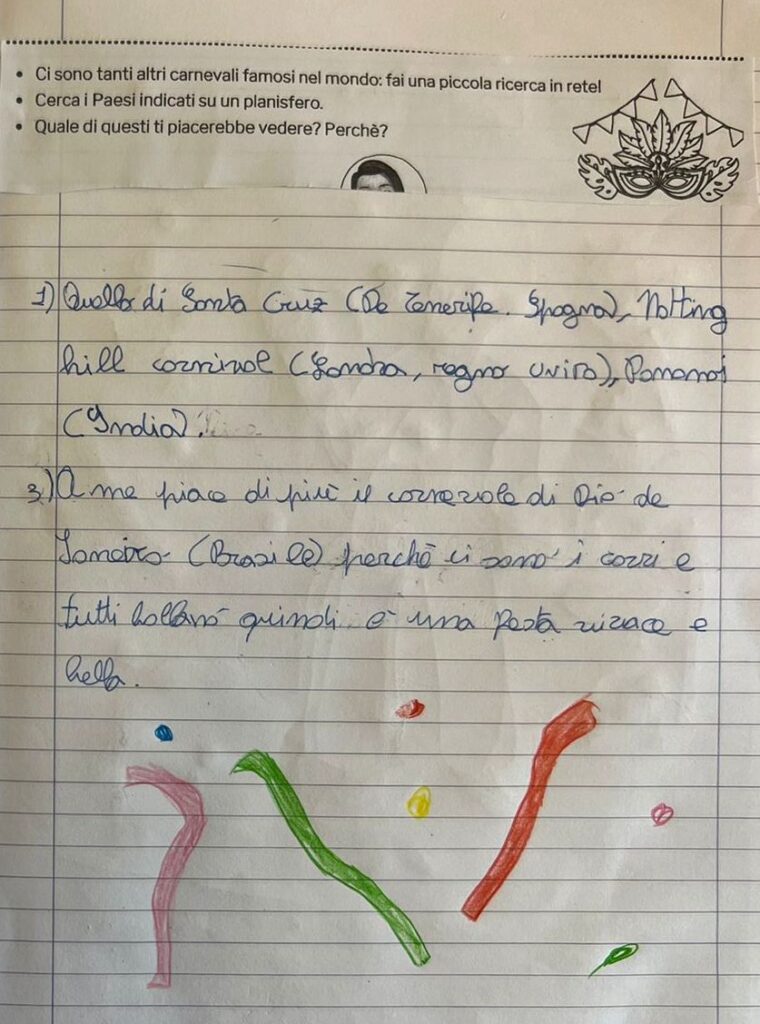 Ci sono tanti altri carnevali famosi nel mondo: fai una piccola ricerca in rete!
Cerca i Paesi indicati su un planisfero.
Quale di questi ti piacerebbe vedere? Perchè?
1) Quello di Santa Cruz (De Tenerife. Spagna), Notting
hill carnival (Londra, regno unito), Panamaj
(India).
3) A me piace di più il carnevale di Rio de
Janeiro (Brasile) perchè ci sono i carri e
tutti ballano quindi è una festa vivace e
bella.